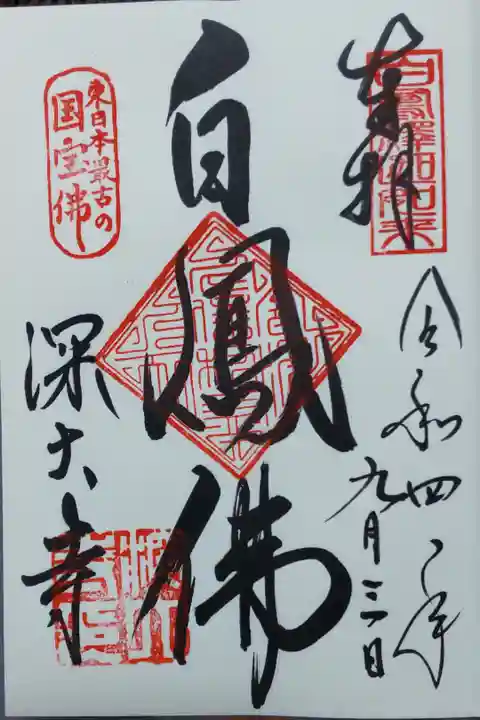 奉拝
令和四年
九月三日
白鳳佛
東日本最古の
国宝佛
深大寺